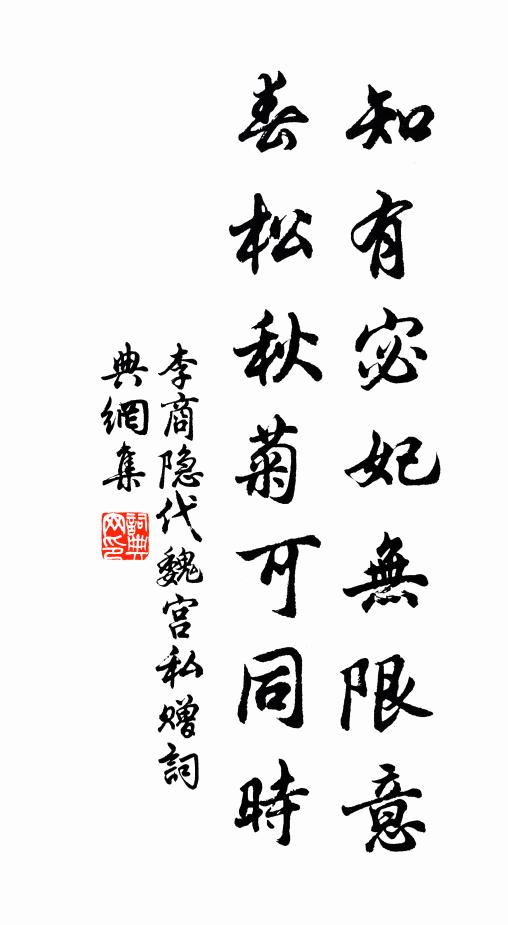 知有宓妃無限意
春松秋菊可同時
李商隐代魏宫私赠詞
典網集
詞典網印